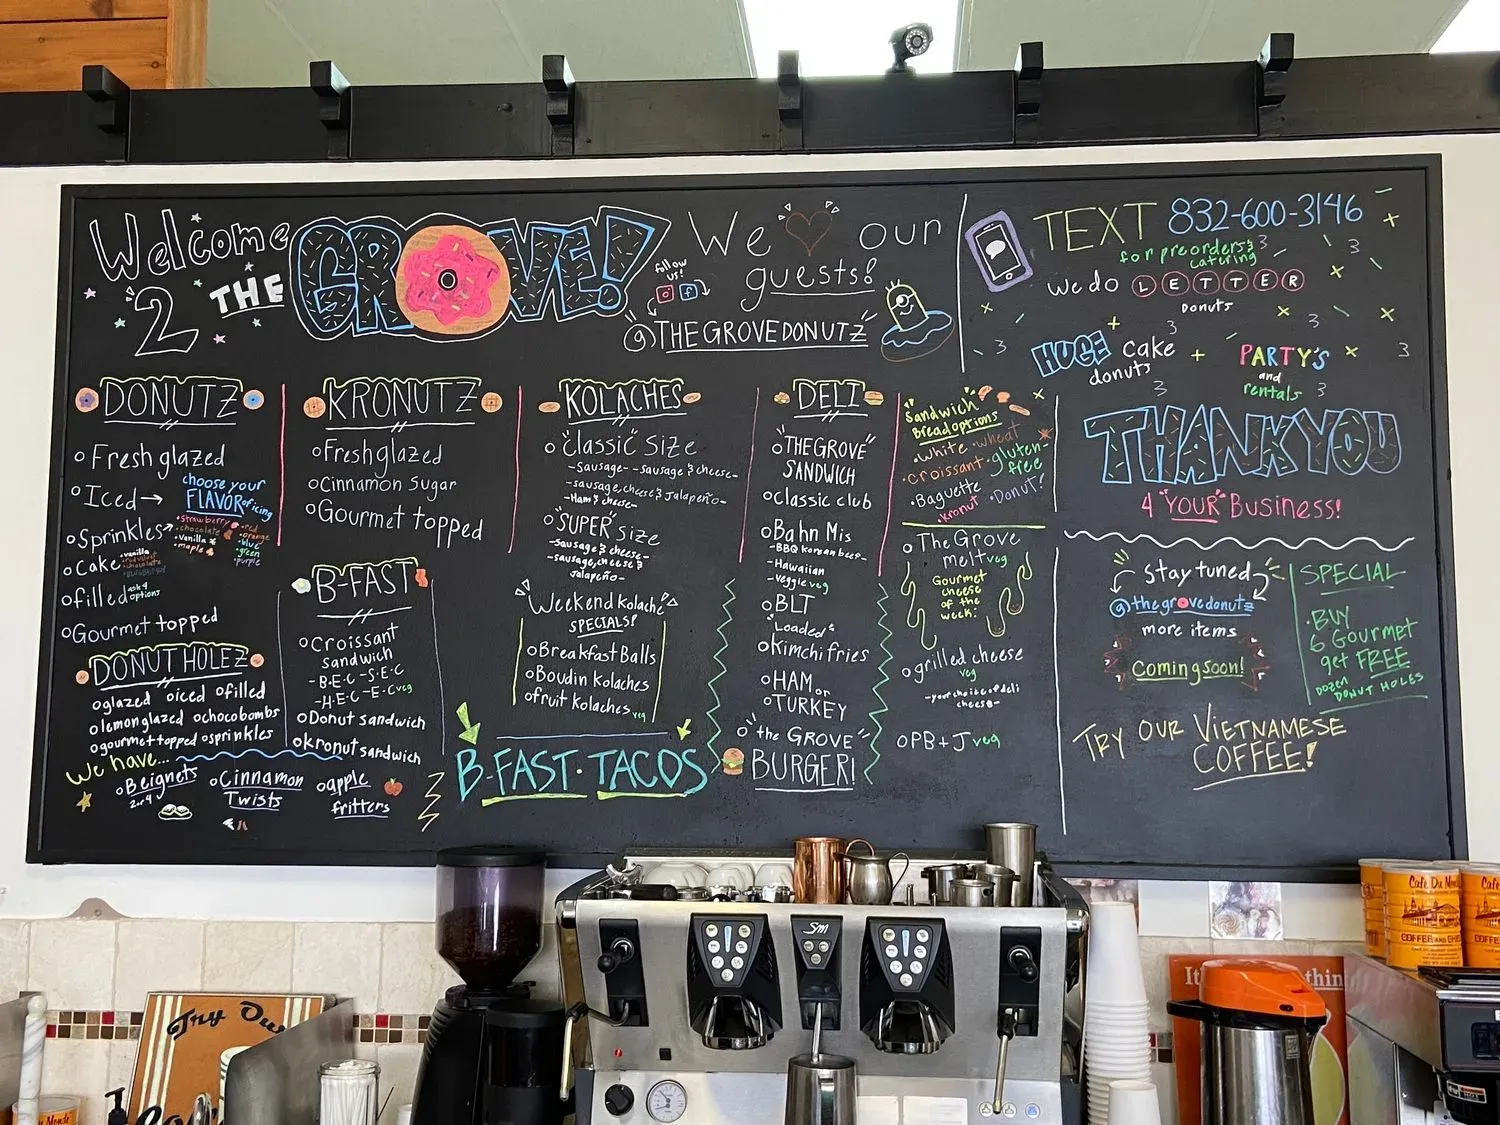 Welcome
2 THE GROVE!
We our
guests!
follow
us!
@THEGROVEDONUTZ
TEXT 832-600-3146
for preorders &
catering
we do LETTER
Donuts
HUGE cake
donuts
+
PARTY'S
and
rentals
THANK YOU
4 "YOUR" Business!
DONUTZ
Fresh glazed
Iced →
choose your
FLAVOR of icing
Sprinkles
strawberry
chocolate
vanilla
maple
red
orange
blue
green
purple
Cake
vanilla
red velvet
chocolate
filled ask 4
options
Gourmet topped
DONUT HOLEZ
glazed iced filled
lemon glazed chocobombs
gourmet topped sprinkles
We have...
Beignets
2 or 4
Cinnamon
Twists
apple
fritters
KRONUTZ
Fresh glazed
Cinnamon Sugar
Gourmet topped
B-FAST
Croissant
Sandwich
-B·E·C -S·E·C
-H·E·C -E·C veg
Donut sandwich
kronut sandwich
KOLACHES
"Classic" Size
-Sausage- -Sausage & cheese-
-sausage, cheese & Jalapeño-
-Ham & cheese-
"SUPER" Size
-Sausage & cheese-
-sausage, cheese &
Jalapeño-
"Weekend Kolache"
SPECIALS!
Breakfast Balls
Boudin Kolaches
fruit Kolaches veg
B-FAST·TACOS
DELI
"THE GROVE"
SANDWICH
Classic club
Bahn Mis
-BBQ Korean beef-
-Hawaiian
-Veggie veg
BLT
"Loaded"
Kimchi fries
HAM or
TURKEY
"the GROVE"
BURGER!
Sandwich
Bread options
·White ·wheat
·croissant ·gluten-
free
·Baguette
·kronut ·Donut!
The Grove
melt veg
Gourmet
cheese
of the
week!
grilled cheese
veg
-your choice of deli
cheese-
PB+J veg
Stay tuned
@thegrovedonutz
more items
Coming soon!
SPECIAL
·BUY
6 Gourmet
get FREE
DOZEN
DONUT HOLES
TRY OUR VIETNAMESE
COFFEE!
Sm
Try Our
Café Du Monde
COFFEE AND